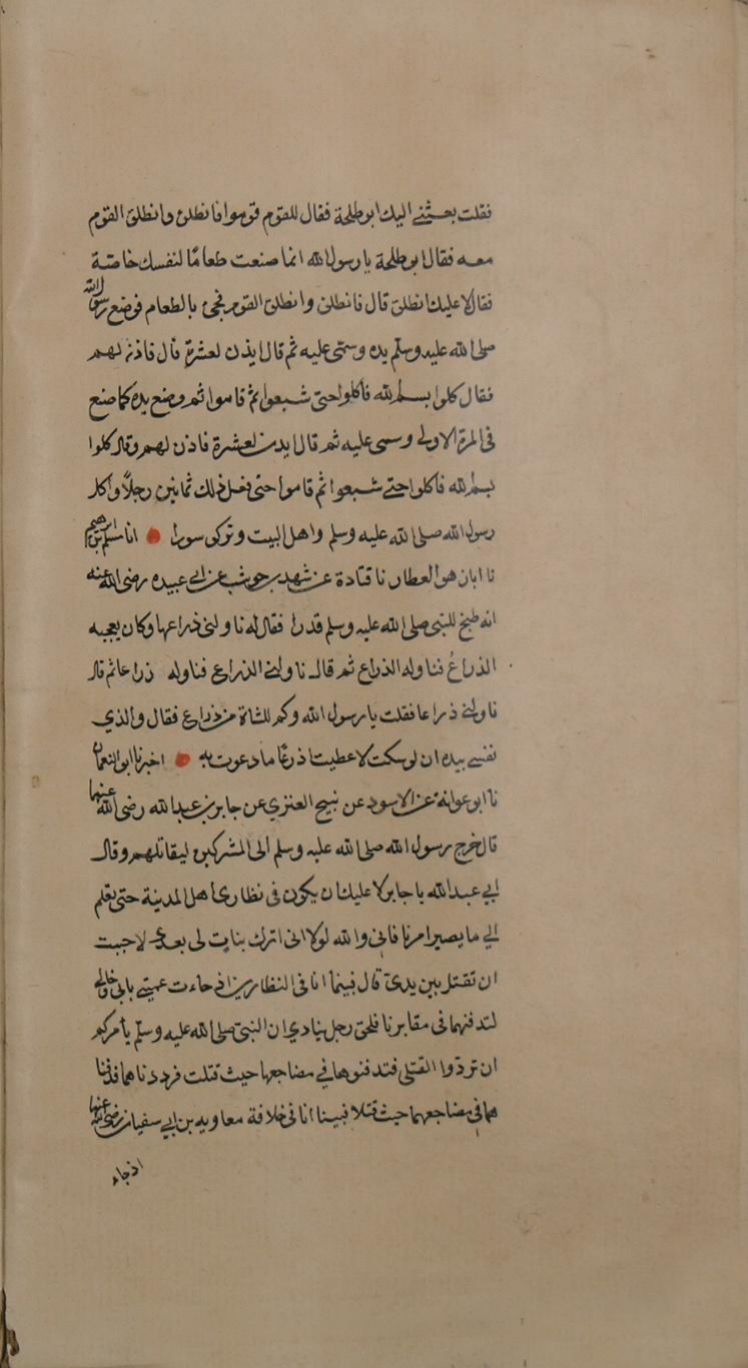 فقلت بعثني اليك ابو طلحة فقال للقوم قوموا فانطلق وانطلق القوم
معه فقال ابو طلحة يا رسول الله انما صنعت طعامًا لنفسك خاصّة
فقال لا عليك انطلق قال فانطلق وانطلق القوم فجئ بالطعام فوضع رسول الله
صلى الله عليه وسلم يده وسمّى عليه ثم قال ايذن لعشرة قال فاذن لهم
فقال كلوا بسم الله فاكلوا حتى شبعوا ثم قاموا ثم وضع يده كما صنع
فى المرة الاولى وسمى عليه ثم قال ايذن لعشرة فاذن لهم وقال كلوا
بسم الله فاكلوا حتى شبعوا ثم قاموا حتى فعل ذلك ثمانين رجلًا واكل
رسول الله صلى الله عليه وسلم واهل البيت وتركوا سورا انا مسلم بن ابرهيم
نا ابان هو العطار نا قتادة عن شهر بن حوشب عن ابي عبيده رضى الله عنه
انه طبخ للنبى صلى الله عليه وسلم قدرا فقال له ناولنى ذراعها وكان يعجبه
الذراعُ فناوله الذراع ثم قال ناولني الذراع فناوله ذراعا ثم قال
ناولني ذراعا فقلت يا رسول الله وكم للشاة من ذراع فقال والذي
نفسي بيده ان لو سكت لاعطيت اذرعًا ما دعوت به اخبرنا ابو النعمان
نا ابو عوانة عن الاسود عن نبيح العنزي عن جابر بن عبد الله رضى الله عنهما
قال خرج رسول الله صلى الله عليه وسلم الى المشركين ليقاتلهم وقال
ابي عبد الله يا جابر لا عليك ان يكون فى نظارى اهل المدينة حتى تعلم
الي ما يصير امرنا فاني والله لولا انى اترك بنات لى بعدى لاحببت
ان تقتل بين يدي قال فبينما انا فى النظارين اذ جاءت عمتي بابي وخالي
لتدفنهما فى مقابرنا فلحق رجل ينادي ان النبى صلى الله عليه وسلم يأمركم
ان تردّوا القتلى فتدفنوها في مضاجعها حيث قتلت فرددناهما فدفنا
هما في مضاجعهما حيث قتلا فبينا انا فى خلافة معاويه بن ابي سفيان رضى الله عنهما
اذ جاء